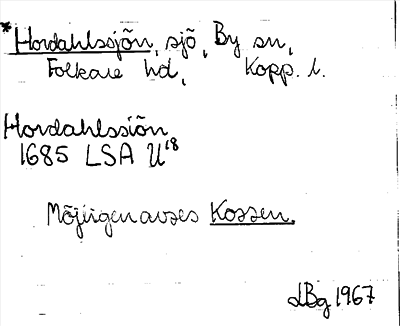 *Hordahlssjön, sjö, By sn,
Folkare hd, Kopp. l.
Hordahlssiön
1685 LSA U18
Möjligen avses Kossen.
LBg 1967